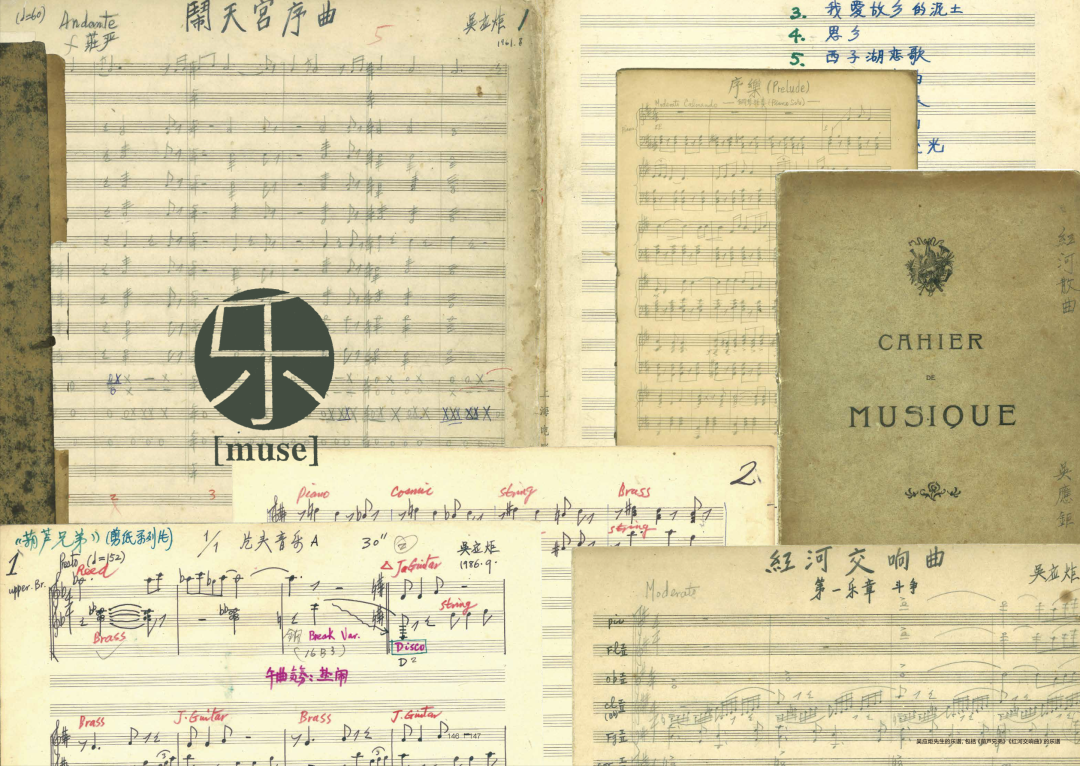 (♩=60)
Andante
f 莊严
鬧天宮序曲
5
吴应炬
1961.8
1
3. 我爱故乡的泥土
4. 思乡
5. 西子湖恋歌
光
序樂 (Prelude)
Moderato
CAHIER
DE
MUSIQUE
紅河散曲
吳應鉅
乐
[muse]
10
2
3
2.
Piano
Cosmic
string
Brass
string
《葫芦兄弟》(剪纸系列片)
1/1 片头音乐A 30" ②
吴应炬
1986.9.
1
Presto (♩=152)
upper. Br.
Reed
△ Ja.Guitar
string
Brass
Break Var.
(1683)
Disco
D2
Brass
J.Guitar
Brass
J.Guitar
146 147
紅河交响曲
第一乐章 斗争
吴应炬
Moderato
picc
Fl
ob
cl
Fg
吴应炬先生的乐谱，包括《葫芦兄弟》《红河交响曲》的乐谱